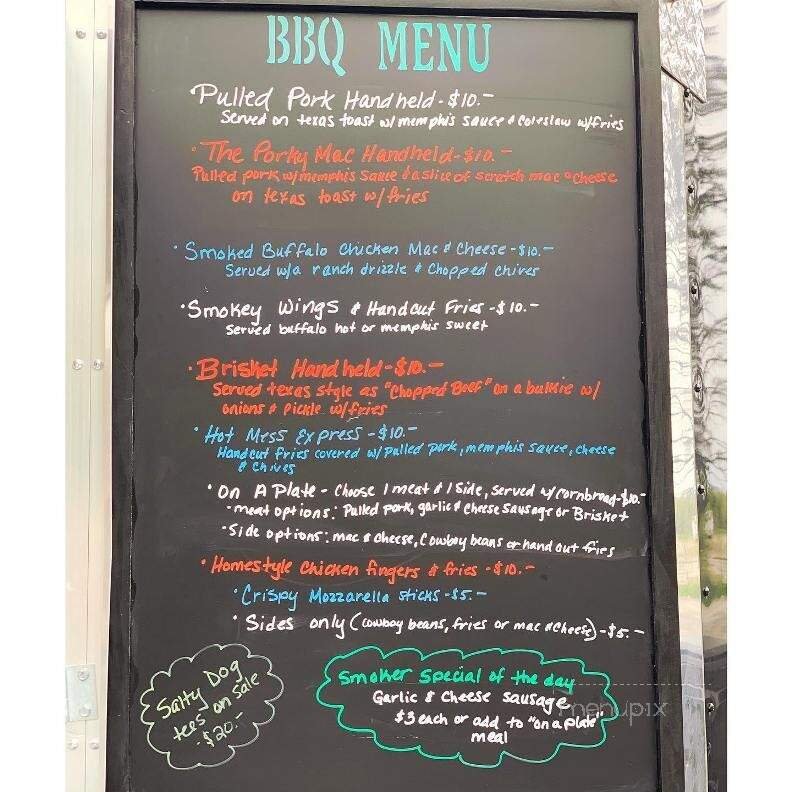 BBQ MENU
Pulled Pork Handheld - $10.-
Served on texas toast w/ memphis sauce & coleslaw w/fries
· The Porky Mac Handheld - $10. -
Pulled pork w/memphis sauce & a slice of scratch mac & cheese
on texas toast w/ fries
· Smoked Buffalo Chicken Mac & Cheese - $10. -
Served w/a ranch drizzle & Chopped Chives
· Smokey Wings & Handcut Fries - $10. -
Served buffalo hot or memphis sweet
· Brisket Handheld - $10. -
Served texas style as "Chopped Beef" on a bulkie w/
onions & pickle w/fries
· Hot Mess Express - $10. -
Handcut fries covered w/ pulled pork, memphis sauce, cheese
& chives
· On A Plate - Choose 1 meat & 1 side, served w/ cornbread - $10. -
- meat options: Pulled pork, garlic & cheese sausage or Brisket
- Side options: mac & cheese, Cowboy beans or hand cut fries
· Homestyle Chicken fingers & fries - $10. -
· Crispy Mozzarella sticks - $5. -
· Sides only (cowboy beans, fries or mac & cheese) - $5. -
Salty Dog
tees on sale
- $20. -
Smoker Special of the day
Garlic & Cheese sausage
$3 each or add to "on a plate"
meal
menupix